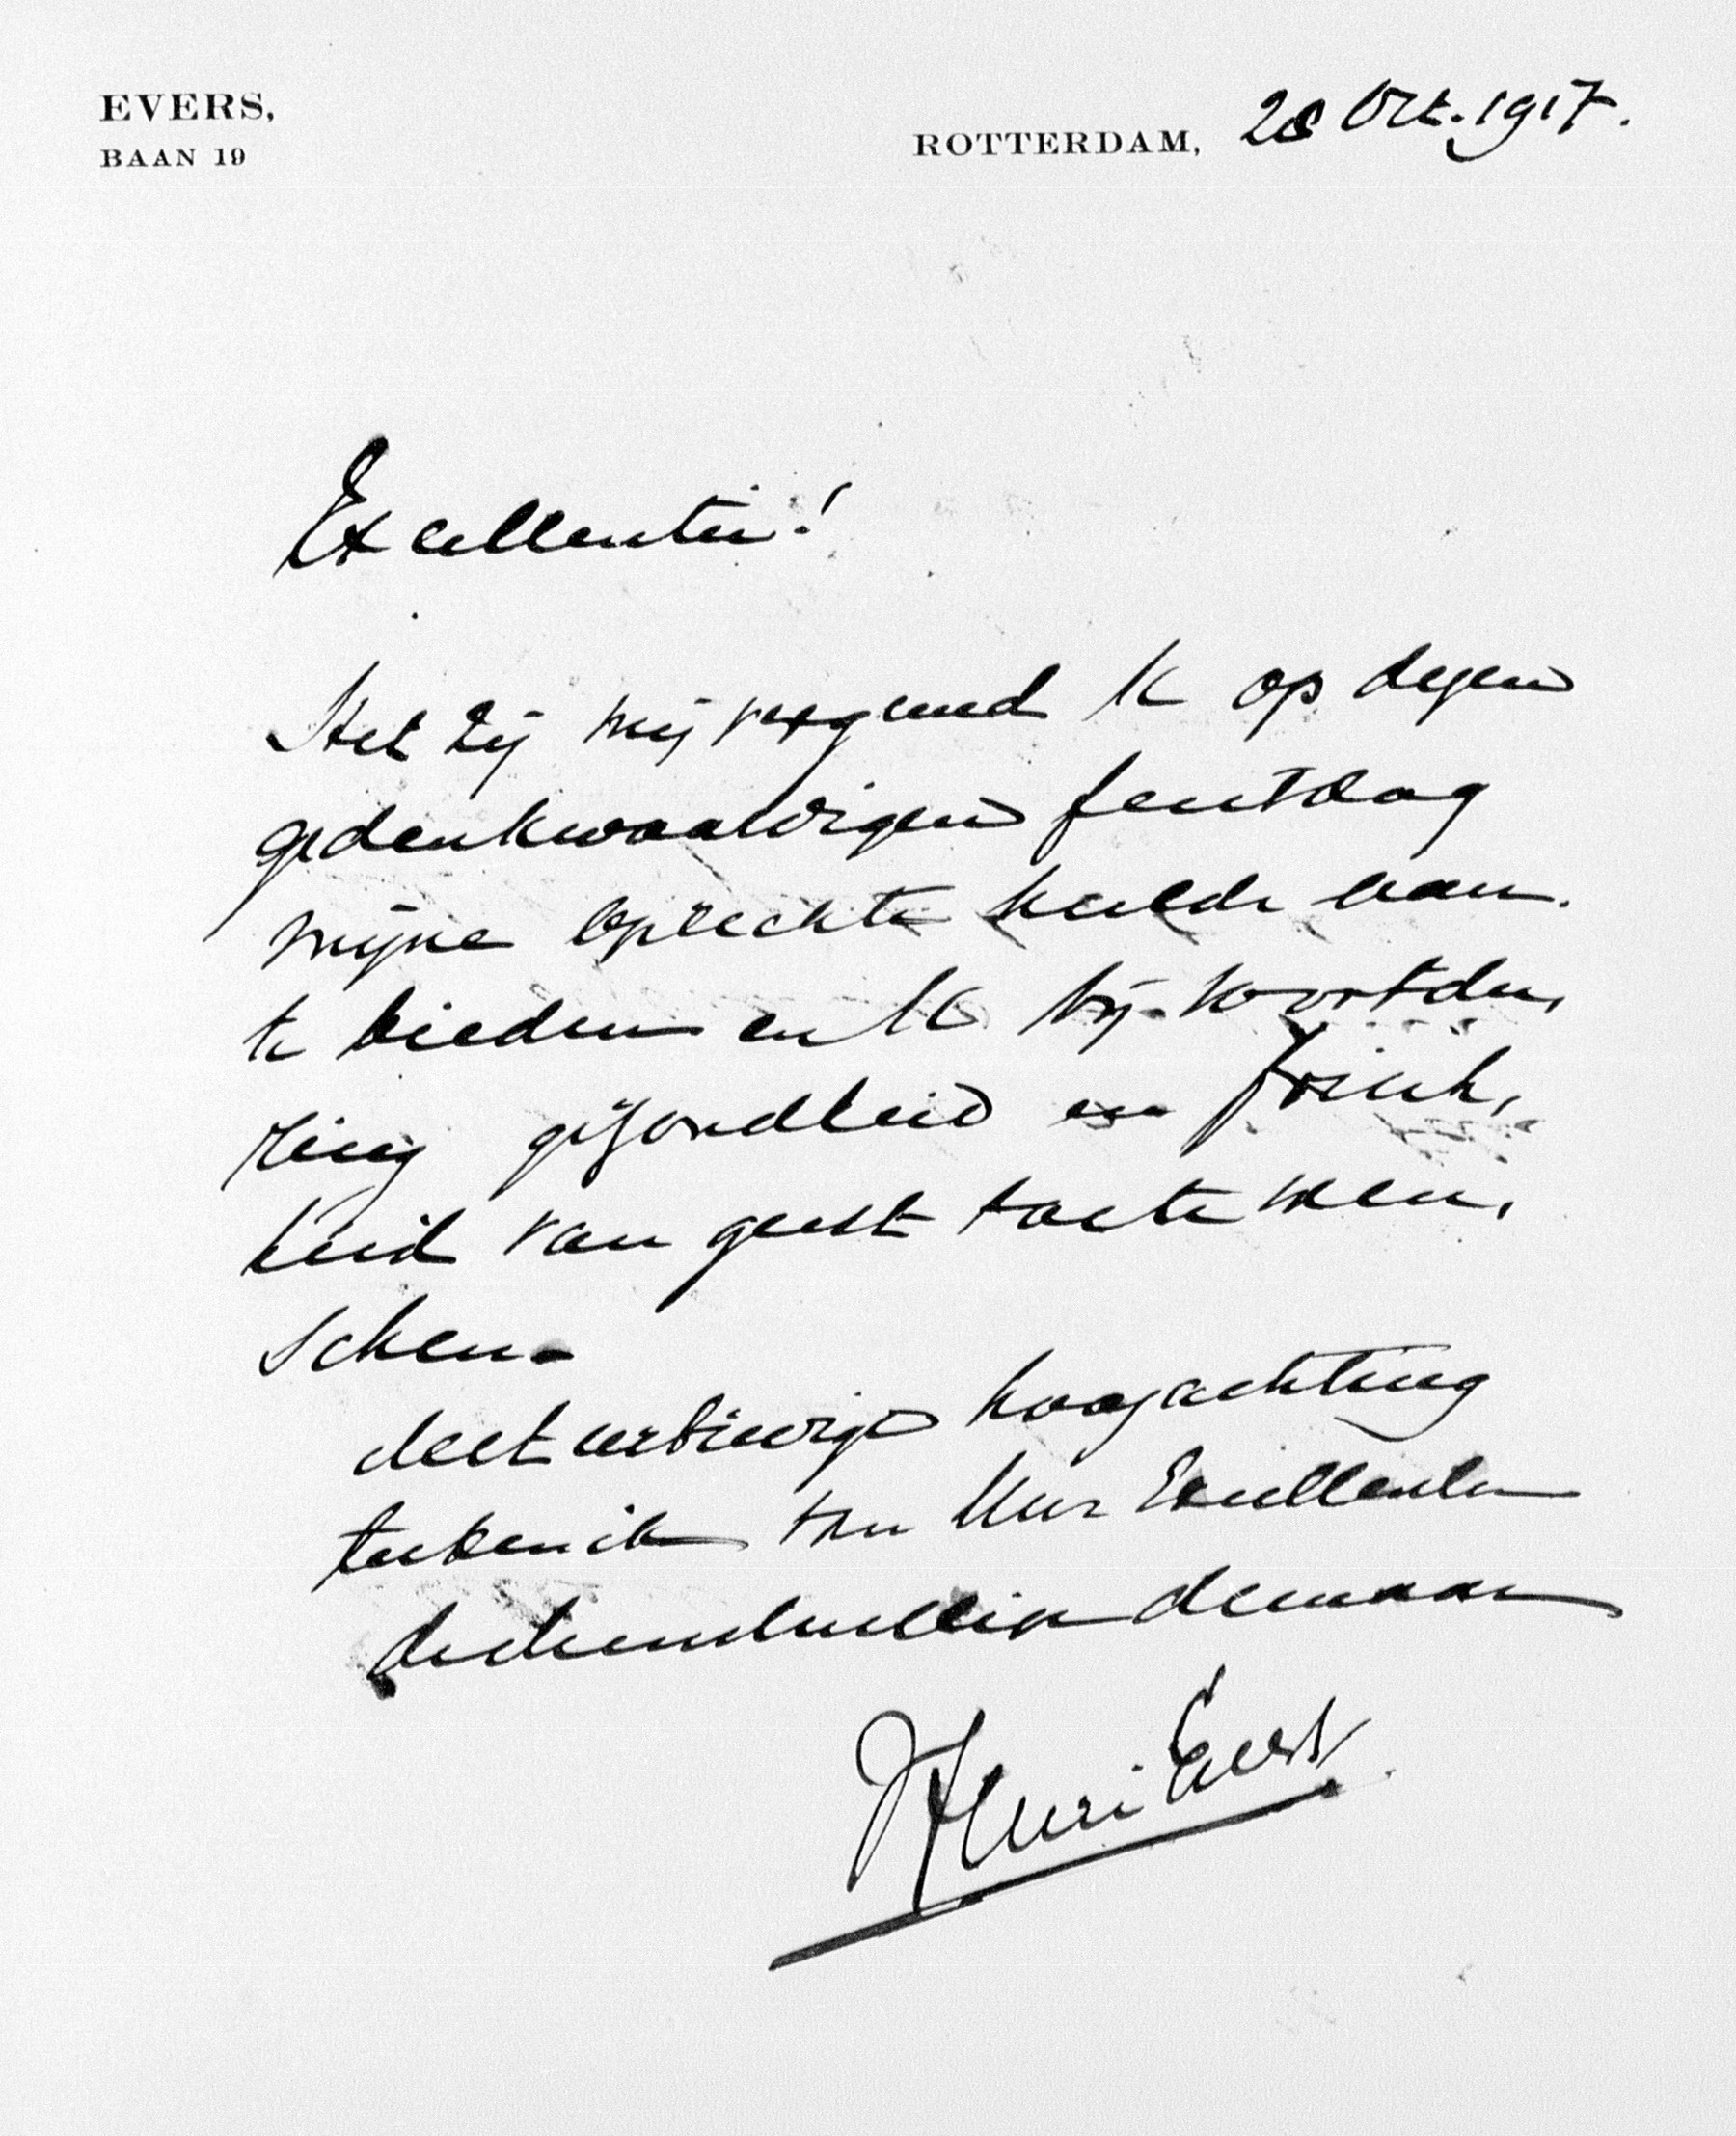 EVERS,
BAAN 19
ROTTERDAM, 28 Oct. 1917.
Excellentie!
Het zij mij vergund U op dezen
gedenkwaardigen feestdag
mijne oprechte hulde aan
te bieden en U bij voortdu,
ring gezondheid en frisch,
heid van geest toe te wen,
schen.
Met eerbiedige hoogachting
teeken ik van Uwe Excellentie
de dienstwillige dienaar
Henri Evers